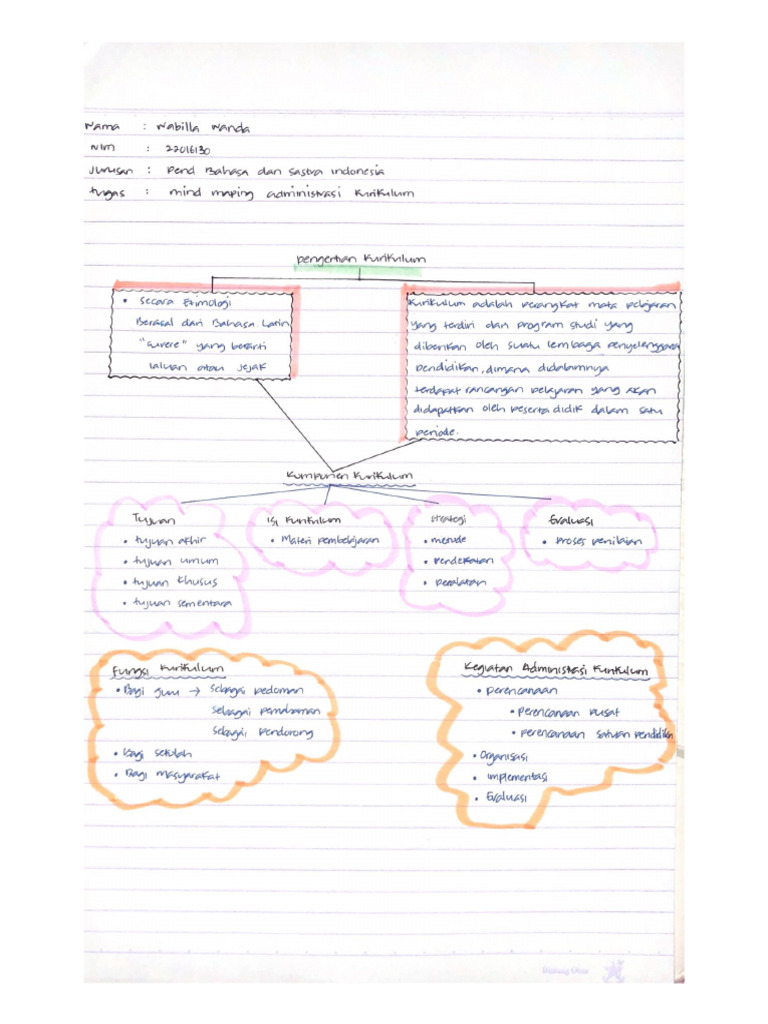 Nama : Nabilla Nanda
NIM : 22016130
Jurusan : Pend Bahasa dan Sastra Indonesia
tugas : mind maping administrasi Kurikulum
pengertian Kurikulum
• Secara Etimologi
Berasal dari Bahasa Latin
"Curere" yang berarti
laluan atau jejak
Kurikulum adalah perangkat mata pelajaran
yang terdiri dari program studi yang
diberikan oleh suatu lembaga penyelenggara
pendidikan, dimana didalamnya
terdapat rancangan pelajaran yang akan
didapatkan oleh peserta didik dalam satu
periode.
Komponen Kurikulum
Tujuan
• tujuan akhir
• tujuan umum
• tujuan khusus
• tujuan sementara
Isi Kurikulum
• Materi pembelajaran
Strategi
• metode
• pendekatan
• peralatan
Evaluasi
• Proses penilaian
Fungsi Kurikulum
• Bagi guru → sebagai pedoman
sebagai pemahaman
sebagai pendorong
• Bagi sekolah
• Bagi masyarakat
Kegiatan Administrasi Kurikulum
• perencanaan
• perencanaan pusat
• perencanaan satuan pendidikan
• Organisasi
• implementasi
• Evaluasi